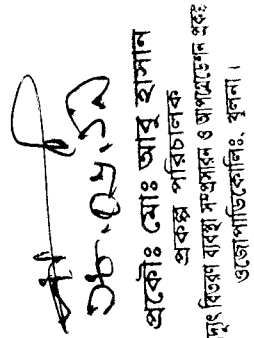 ১৮.০৬.১৯
প্রকৌঃ মোঃ আবু হাসান
প্রকল্প পরিচালক
দ্যুৎ বিতরণ ব্যবস্থা সম্প্রসারন ও আপগ্রেডেশন প্রকঃ
ওজোপাডিকোলিঃ, খুলনা।